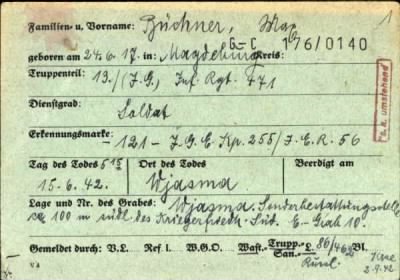 1
Familien- u. Vorname: Büchner, Max
G-C 176/0140
geboren am 24.6.17. in: Magdeburg Kreis:
Truppenteil: 13./(J.G.) Inf. Rgt. 471
Dienstgrad: Soldat
s. a. umstehend
Erkennungsmarke: -121- J.G.E. Kp. 255/J.E.R. 56
Tag des Todes 5 15 Ort des Todes Beerdigt am
15.6.42. Wjasma
Lage und Nr. des Grabes: Wjasma, Sonderbestattungsstelle
100 m südl. des Kriegerfriedh. Süd. E-Grab 10.
Gemeldet durch: V.L. Ref. l. W.G.O. Wast.- Trupp.- San.- L. 86/ Bl.
2.9.42